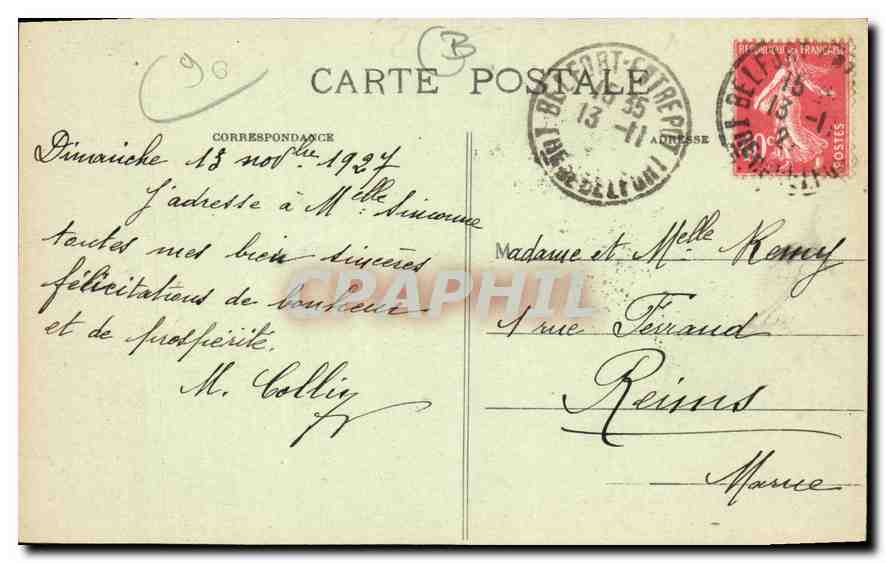 90
B
CARTE POSTALE
CORRESPONDANCE
ADRESSE
BELFORT-ENTREPÔT
35
13 -11
TRE DE BELFORT
REPUBLIQUE FRANÇAISE
POSTES
BELFORT
13
Dimanche 13 novbre 1927
J'adresse à Melle Simonne
toutes mes bien sincères
félicitations de bonheur
et de prospérité.
M. Collin
Madame et Melle Remy
1 rue Ferrand
Reims
Marne
CPAPHIL